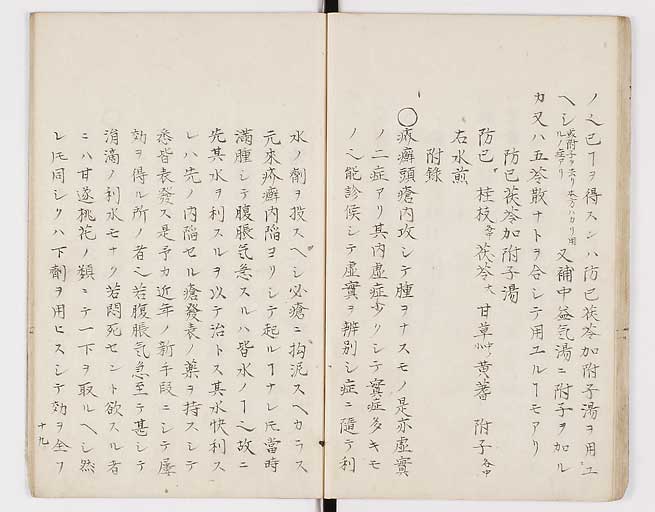 ノ之已ヿヲ得スンハ防已茯苓加附子湯ヲ用ユ
ヘシ 又補中益気湯ニ附子ヲ加ル
カ又ハ五苓散ナトヲ合シテ用ユルヿモアリ
防已茯苓加附子湯
防已 桂枝 各中 茯苓 大 甘草 小 黄蓍 附子 各中
右水煎
附錄
〇疥癬頭瘡内攻シテ腫ヲナスモノ是亦虚實
ノ二症アリ其内虚症少クシテ實症多キモ
ノ之能診候シテ虚實ヲ辨别シ症ニ隨テ利
水ノ劑ヲ投スヘシ必瘡ニ拘泥スヘカラス
元来疥癬内陷ヨリシテ起ルヿナレ𪜈當時
満腫シテ腹脹気急スルハ皆水ノヿ之故ニ
先其水ヲ利スルヲ以テ治トス其水快利ス
レハ先ノ内陷セル瘡發表ノ薬ヲ持スシテ
悉皆表發ス是予カ近年ノ新手段ニシテ屡
効ヲ得ル所ノ者之若腹脹気急至テ甚シテ
涓滴ノ利水モナク若悶死セント欲スル者
ニハ甘遂桃花ノ類ニテ一下ヲ取ルヘシ然
レ𪜈同シクハ下劑ヲ用ヒスシテ効ヲ全フ
十九